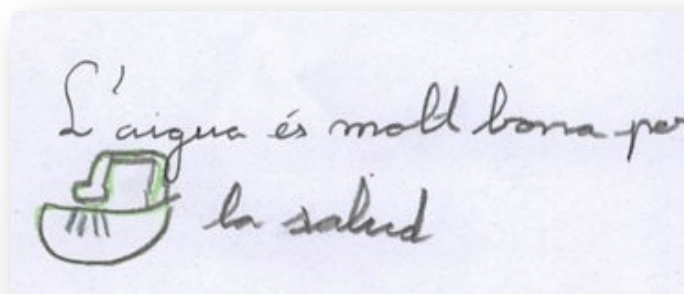 L'aigua és molt bona per
la salud